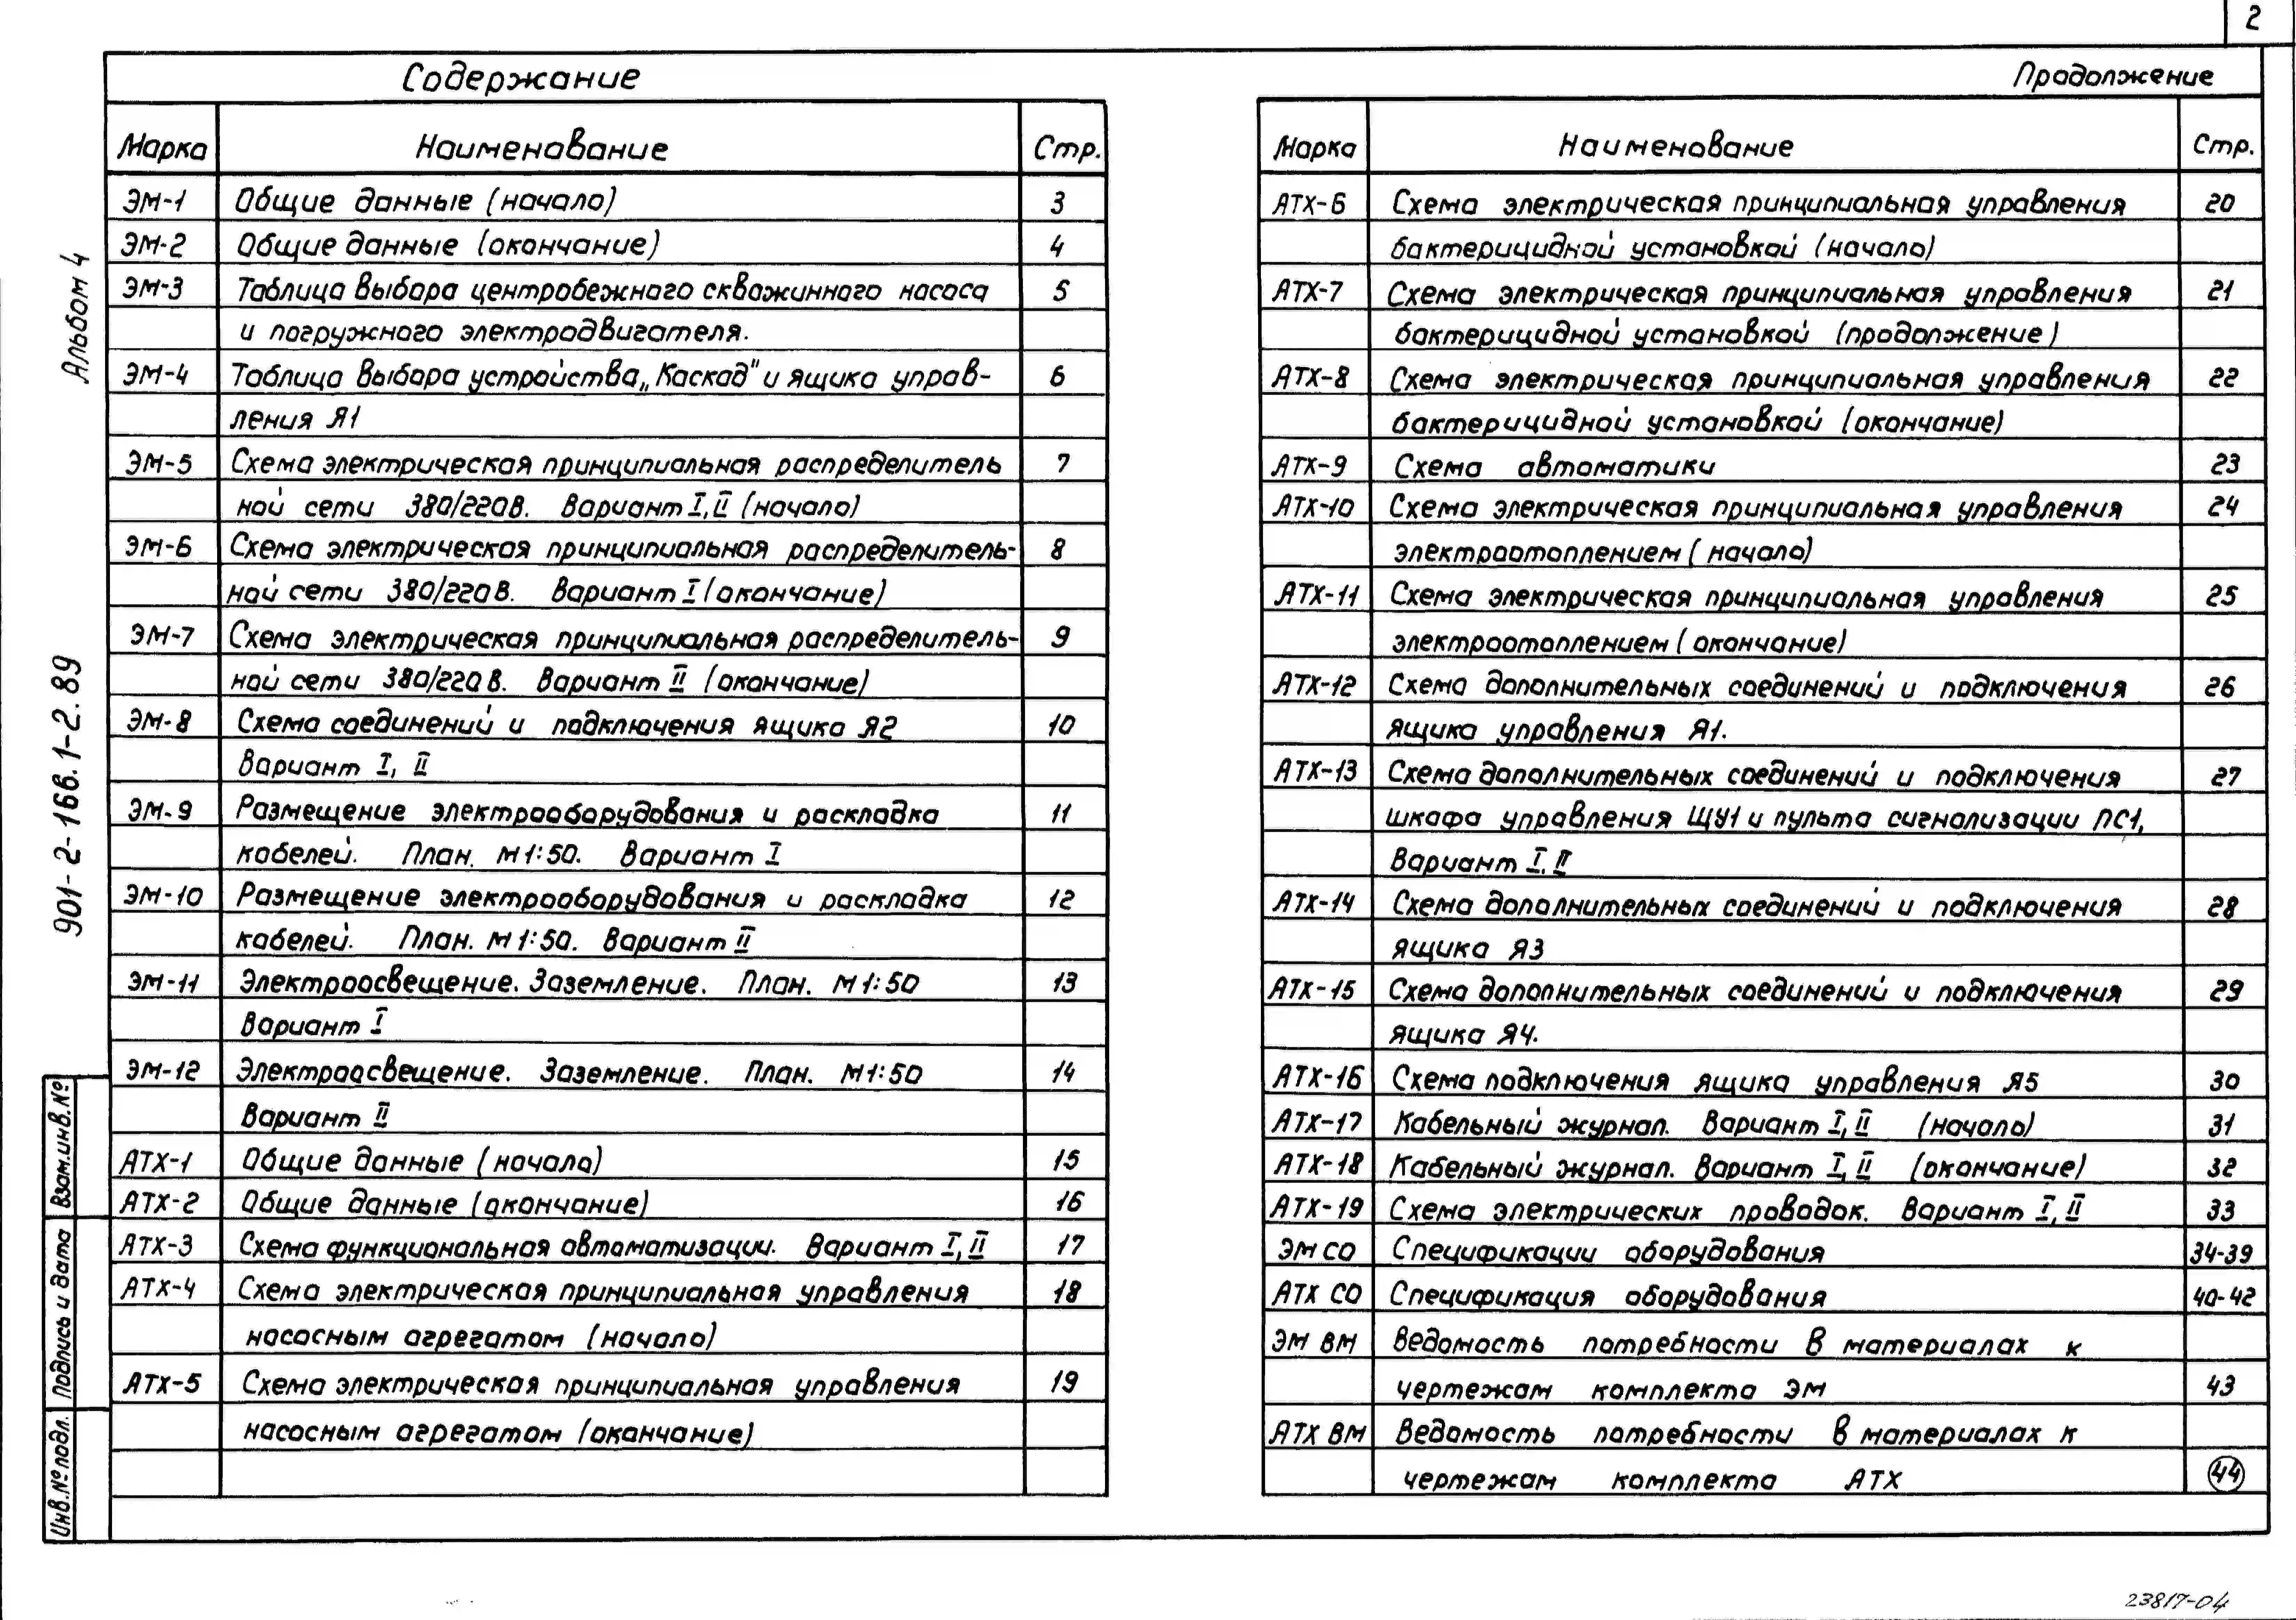 2
Содержание
Марка Наименование Стр.
ЭМ-1 Общие данные (начало) 3
ЭМ-2 Общие данные (окончание) 4
ЭМ-3 Таблица выбора центробежного скважинного насоса 5
и погружного электродвигателя.
ЭМ-4 Таблица выбора устройства „Каскад" и ящика управ- 6
ления Я1
ЭМ-5 Схема электрическая принципиальная распределитель 7
ной сети 380/220В. Вариант I, II (начало)
ЭМ-6 Схема электрическая принципиальная распределитель- 8
ной сети 380/220В. Вариант I (окончание)
ЭМ-7 Схема электрическая принципиальная распределитель- 9
ной сети 380/220В. Вариант II (окончание)
ЭМ-8 Схема соединений и подключения ящика Я2 10
Вариант I, II
ЭМ-9 Размещение электрооборудования и раскладка 11
кабелей. План. М1:50. Вариант I
ЭМ-10 Размещение электрооборудования и раскладка 12
кабелей. План. М1:50. Вариант II
ЭМ-11 Электроосвещение. Заземление. План. М1:50 13
Вариант I
ЭМ-12 Электроосвещение. Заземление. План. М1:50 14
Вариант II
АТХ-1 Общие данные (начало) 15
АТХ-2 Общие данные (окончание) 16
АТХ-3 Схема функциональная автоматизации. Вариант I, II 17
АТХ-4 Схема электрическая принципиальная управления 18
насосным агрегатом (начало)
АТХ-5 Схема электрическая принципиальная управления 19
насосным агрегатом (окончание)
Продолжение
Марка Наименование Стр.
АТХ-6 Схема электрическая принципиальная управления 20
бактерицидной установкой (начало)
АТХ-7 Схема электрическая принципиальная управления 21
бактерицидной установкой (продолжение)
АТХ-8 Схема электрическая принципиальная управления 22
бактерицидной установкой (окончание)
АТХ-9 Схема автоматики 23
АТХ-10 Схема электрическая принципиальная управления 24
электроотоплением (начало)
АТХ-11 Схема электрическая принципиальная управления 25
электроотоплением (окончание)
АТХ-12 Схема дополнительных соединений и подключения 26
ящика управления Я1.
АТХ-13 Схема дополнительных соединений и подключения 27
шкафа управления ЩУ1 и пульта сигнализации ПС1,
Вариант I, II
АТХ-14 Схема дополнительных соединений и подключения 28
ящика Я3
АТХ-15 Схема дополнительных соединений и подключения 29
ящика Я4.
АТХ-16 Схема подключения ящика управления Я5 30
АТХ-17 Кабельный журнал. Вариант I, II (начало) 31
АТХ-18 Кабельный журнал. Вариант I, II (окончание) 32
АТХ-19 Схема электрических проводок. Вариант I, II 33
ЭМ СО Спецификации оборудования 34-39
АТХ СО Спецификация оборудования 40-42
ЭМ ВМ Ведомость потребности в материалах к
чертежам комплекта ЭМ 43
АТХ ВМ Ведомость потребности в материалах к
чертежам комплекта АТХ 44
Альбом 4
901-2-166.1-2.89
Взам.инв.№
Подпись и дата
Инв.№ подл.
23817-04